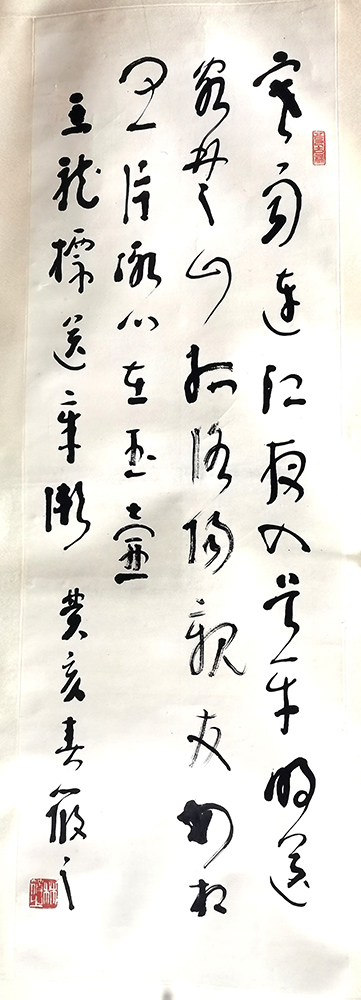 寒雨連江夜入吳平明送
客楚山孤洛陽親友如相
問一片冰心在玉壺
王龍標送辛漸 癸亥春筱之